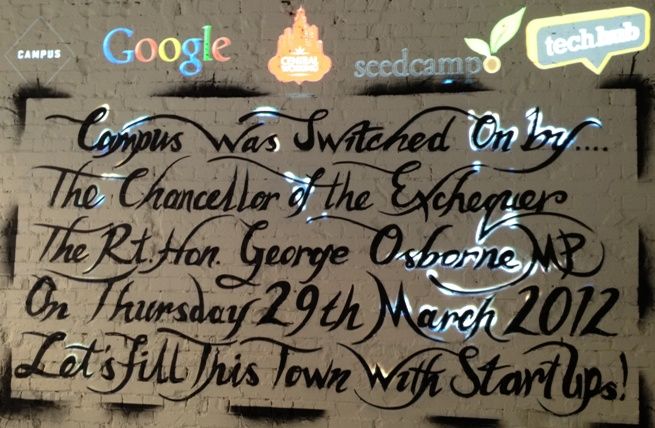 CAMPUS Google CENTRAL WORKING seedcamp techhub
Campus Was Switched On by....
The Chancellor of the Exchequer
The Rt. Hon. George Osborne MP
On Thursday 29th March 2012
Let's Fill This Town With StartUps!